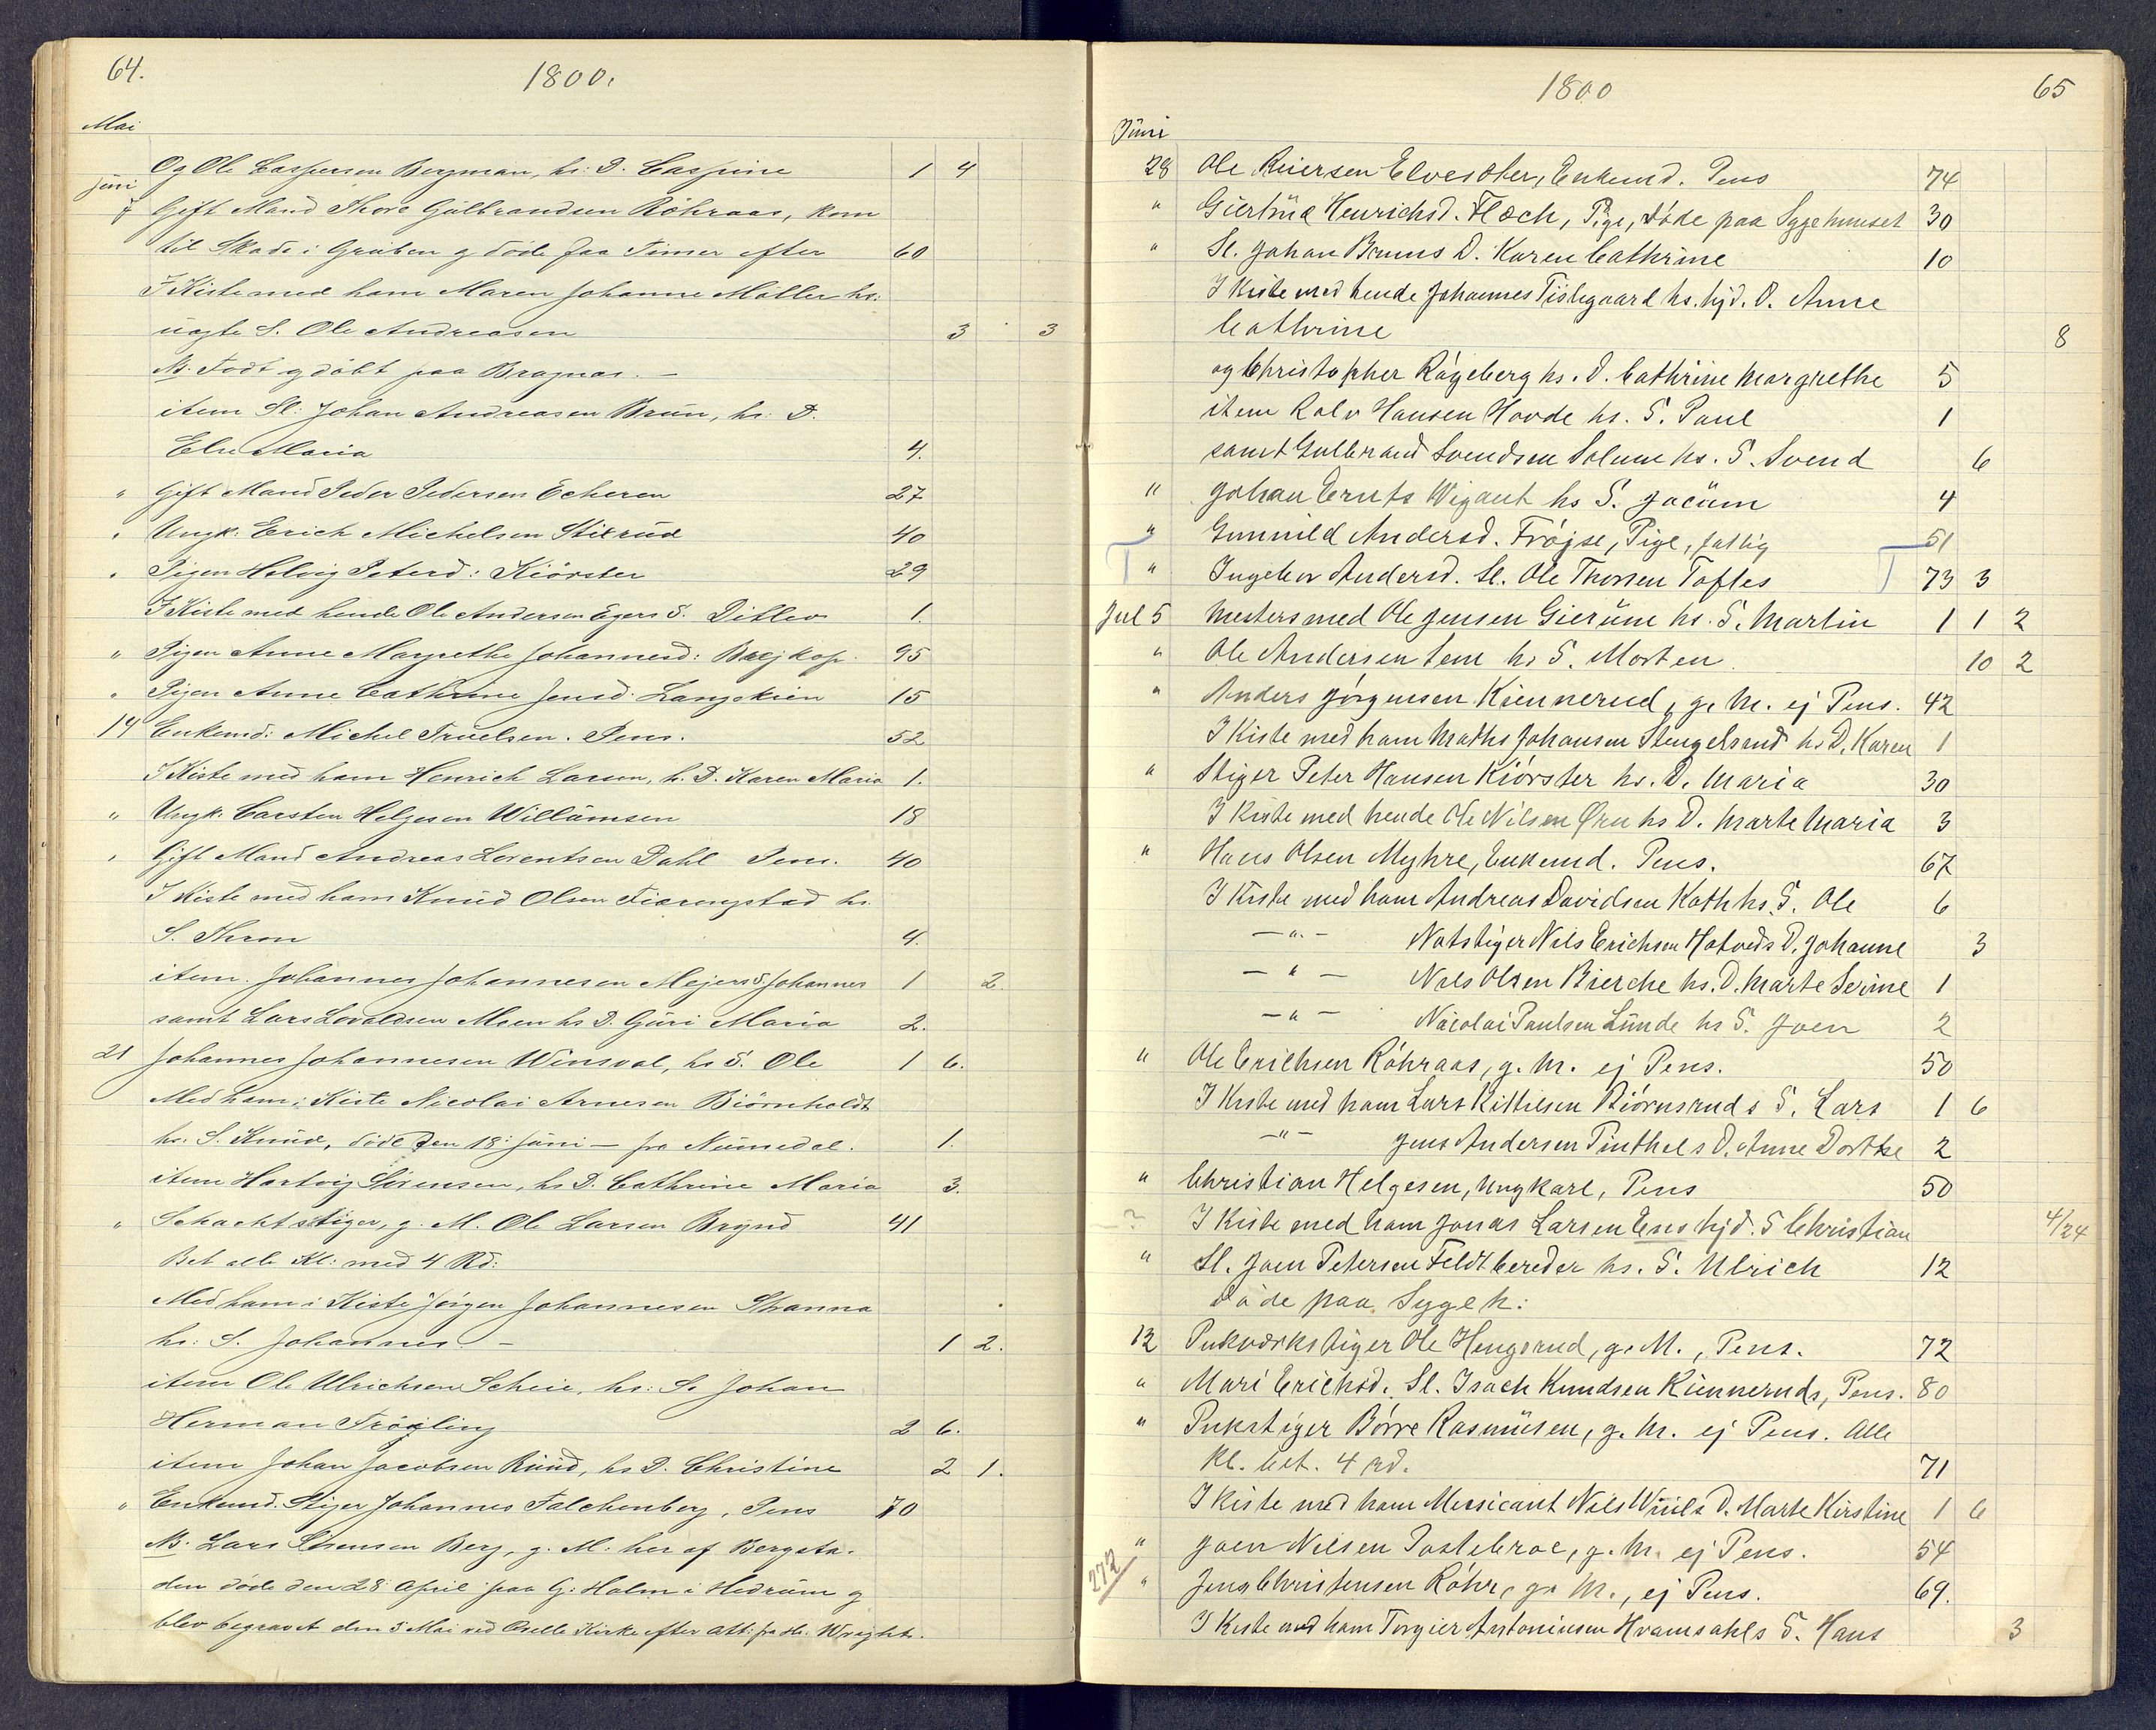 64.
1800.
Mai
Og Ole Caspersen Bergman, hs: D. Caspine 1 4
juni
7 Gift Mand Thore Gulbrandsen Röhraas, kom
til Skade i Gruben g döde faa Timer efter 60
I Kiste med ham Maren Johanne Möller hs:
uægte S. Ole Andreasen 3 3
NB. Födt g döbt paa Bragnæs. —
item Sl: Johan Andreasen Bruun, hs: D.
Else Maria 4.
" Gift Mand Peder Pedersen Echeren 27
" Ungk: Erich Michelsen Stilrud 40
" Pigen Helvig Petersd: Kiörster 29
I Kiste med hende Ole Andersen Egers S. Ditlev 1.
" Pigen Anne Margrethe Johannesd: Brejkop 95
" Pigen Anne Cathrine Jensd. Langskien 15
14 Enkemd: Michel Truelsen. Pens. 52
I Kiste med ham Henrich Larsen, h. D. Karen Maria 1.
" Ungk: Carsten Helgesen Willumsen 18
" Gift Mand Andreas Lorentsen Dahl Pens. 40
I Kiste med ham Knud Olsen Fiarengstad hs.
S. Thron 4.
item. Johannes Johannesen Mejers S. Johannes 1 2.
samt Lars Lovoldsen Moen hs D. Guri Maria 2.
21 Johannes Johannesen Winsvol, hs S. Ole 1 6.
Med ham i Kiste Nicolai Arnesen Biörnholdt
hs. S. Knud, döde den 18: juni — fra Numedal. 1.
item Hartvig Sörensen, hs D. Cathrine Maria 3.
" Schachtstiger, g. M. Ole Larsen Brynd 41
Bet alle Kl: med 4 Rd:
Med ham i Kiste Jörgen Johannesen Stranna
hs: S. Johannes — 1 2.
item Ole Ulrichsen Scheie, hs: S. Johan
Herman Tröger 2 6.
item Johan Jacobsen Ruud, hs D. Christine 2 1.
" Enkemd. Stiger Johannes Falchenberg, Pens 70
NB. Lars Sörensen Berg, g. M. her af Bergsta-
den döde den 28 April paa G: Holm i Hedrum g
blev begravet den 5 Mai ved Kirke efter Att: fra Hr. Wright.
1800
65
Juni
28 Ole Reiersen Elveseter, Enkemd. Pens 74
" Giertrud Henrichsd. Floch, Pige, döde paa Sygehuuset 30
" Sl. Johan Bruuns D. Karen Cathrine 10
I Kiste med hende Johannes Tislegaard hs. hjd. D. Anne
Cathrine 8
og Christopher Rögeberg hs. D. Cathrine Margrethe 5
item Rolv Hansen Hovde hs. S. Paul 1
samt Gulbrand Svendsen Solum hs. S. Svend 6
" Johan Ernts Wigant hs S. Jacum 4
" Gunnild Andersd. Fröjse, Pige, fattig 51
" Ingebor Andersd. Sl. Ole Thorsen Toftes 73 3
Jul 5 Mestersmed Ole Jensen Gierum hs. S. Martin 1 1 2
" Ole Andersen Tem hs S. Morten. 10 2
" Anders Jörgensen Kiennerud, g. M. ej Pens. 42
I Kiste med ham Mathis Johansen Stengelsrud hs D. Karen 1
" Stiger Peter Hansen Kiörster hs. D. Maria 30
I Kiste med hende Ole Nilsen Ørn hs D. Marte Maria 3
" Hans Olsen Myhre, Enkemd. Pens. 67
I Kiste med ham Andreas Davidsen Koth hs. S. Ole 6
— " — Notstiger Nils Erichsen Hotveds D. Johanne 3
— " — Nils Olsen Bierche hs. D. Marte Serine 1
— " — Nicolai Paulsen Lunde hs S. Joen 2
" Ole Erichsen Röhraas, g. M. ej Pens. 50
I Kiste med ham Lars Kittilsen Biörnsruds S. Lars 1 6
— " — Jens Andersen Pinthels D. Anne Dorthe 2
" Christian Helgesen, Ungkarl, Pens 50
? I Kiste med ham Jonas Larsen Ens hjd. S Christian 4/24
" Sl. Joen Petersen Feldtbereder hs. S. Ulrich 12
döde paa Sygeh:
12 Pukværkstiger Ole Hengsrud, g. M., Pens. 72
" Mari Erichsd. Sl. Isach Knudsen Kiennerruds, Pens. 80
" Pukstiger Börre Rasmusen, g. M. ej Pens. Alle
Kl. bet. 4 rd. 71
I Kiste med ham Musicant Nils Wiiels D. Marte Kirstine 1 6
" Joen Nilsen Pastebroe, g. M. ej Pens. 54
272
" Jens Christensen Röhr, g. M., ej Pens. 69.
I Kiste med ham Torgier Antoniusen Hvamsahls S. Hans 3